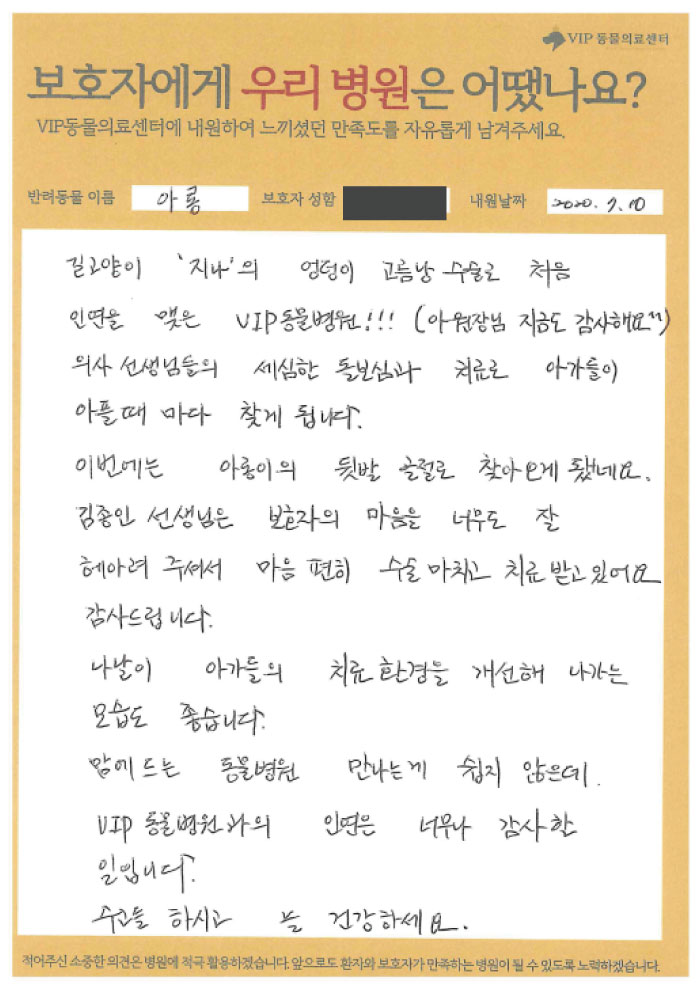 VIP 동물의료센터
보호자에게 우리 병원은 어땠나요?
VIP동물의료센터에 내원하여 느끼셨던 만족도를 자유롭게 남겨주세요.
반려동물 이름 아롱 보호자 성함 내원날짜 2020. 7. 10
길고양이 '지나'의 엉덩이 고름낭 수술로 처음
인연을 맺은 VIP동물병원!!! (아원장님 지금도 감사해요^^)
의사 선생님들의 세심한 돌보심과 치료로 아가들이
아플때 마다 찾게 됩니다.
이번에는 아롱이의 뒷발 골절로 찾아오게 됐네요.
김종인 선생님은 보호자의 마음을 너무도 잘
헤아려 주셔서 마음 편히 수술 마치고 치료 받고 있어요
감사드립니다.
나날이 아가들의 치료 환경을 개선해 나가는
모습도 좋습니다.
맘에 드는 동물병원 만나는게 쉽지 않은데.
VIP 동물병원과의 인연은 너무나 감사한
일입니다.
수고들 하시고 늘 건강하세요.
적어주신 소중한 의견은 병원에 적극 활용하겠습니다. 앞으로도 환자와 보호자가 만족하는 병원이 될 수 있도록 노력하겠습니다.